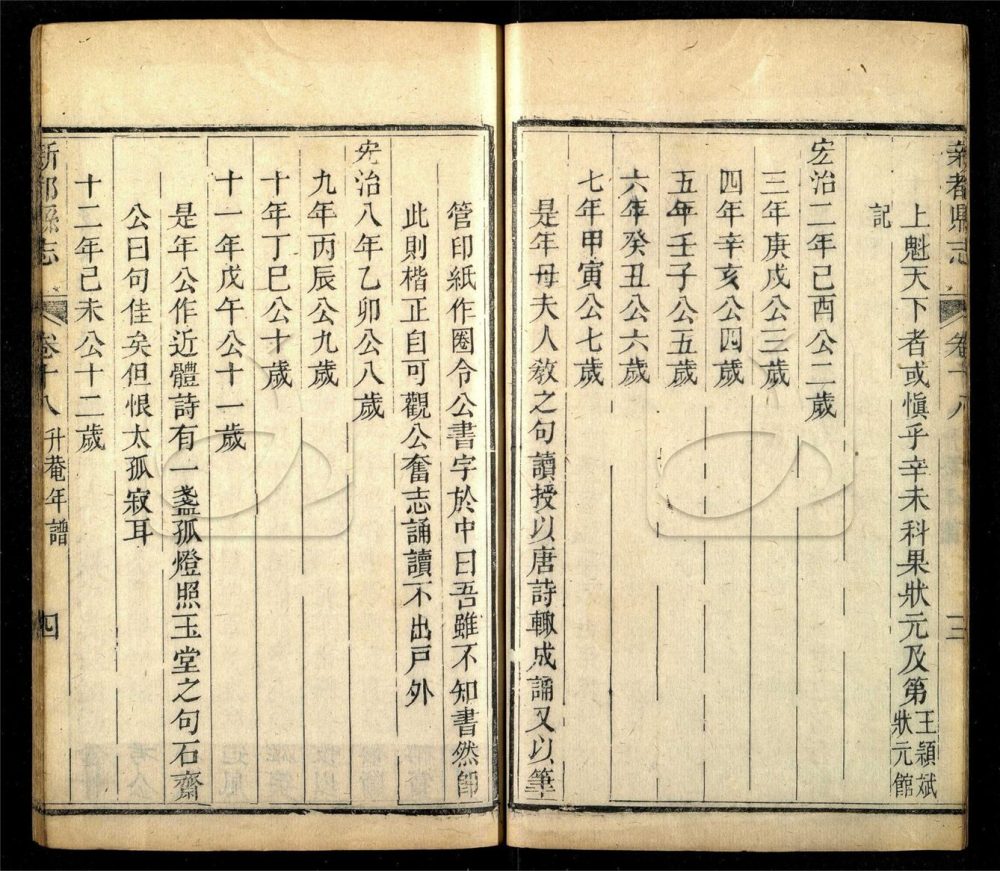 新都縣志 卷十八 三
上魁天下者或愼乎辛未科果狀元及第王頴斌狀元館
記
宏治二年己酉公二歲
三年庚戌公三歲
四年辛亥公四歲
五年壬子公五歲
六年癸丑公六歲
七年甲寅公七歲
是年母夫人敎之句讀授以唐詩輙成誦又以筆
管印紙作圈令公書字於中曰吾雖不知書然卽
此則楷正自可觀公奮志誦讀不出戸外
宏治八年乙卯公八歲
九年丙辰公九歲
十年丁巳公十歲
十一年戊午公十一歲
是年公作近體詩有一盞孤燈照玉堂之句石齋
公曰句佳矣但恨太孤寂耳
十二年己未公十二歲
新都縣志 卷十八 升菴年譜 四